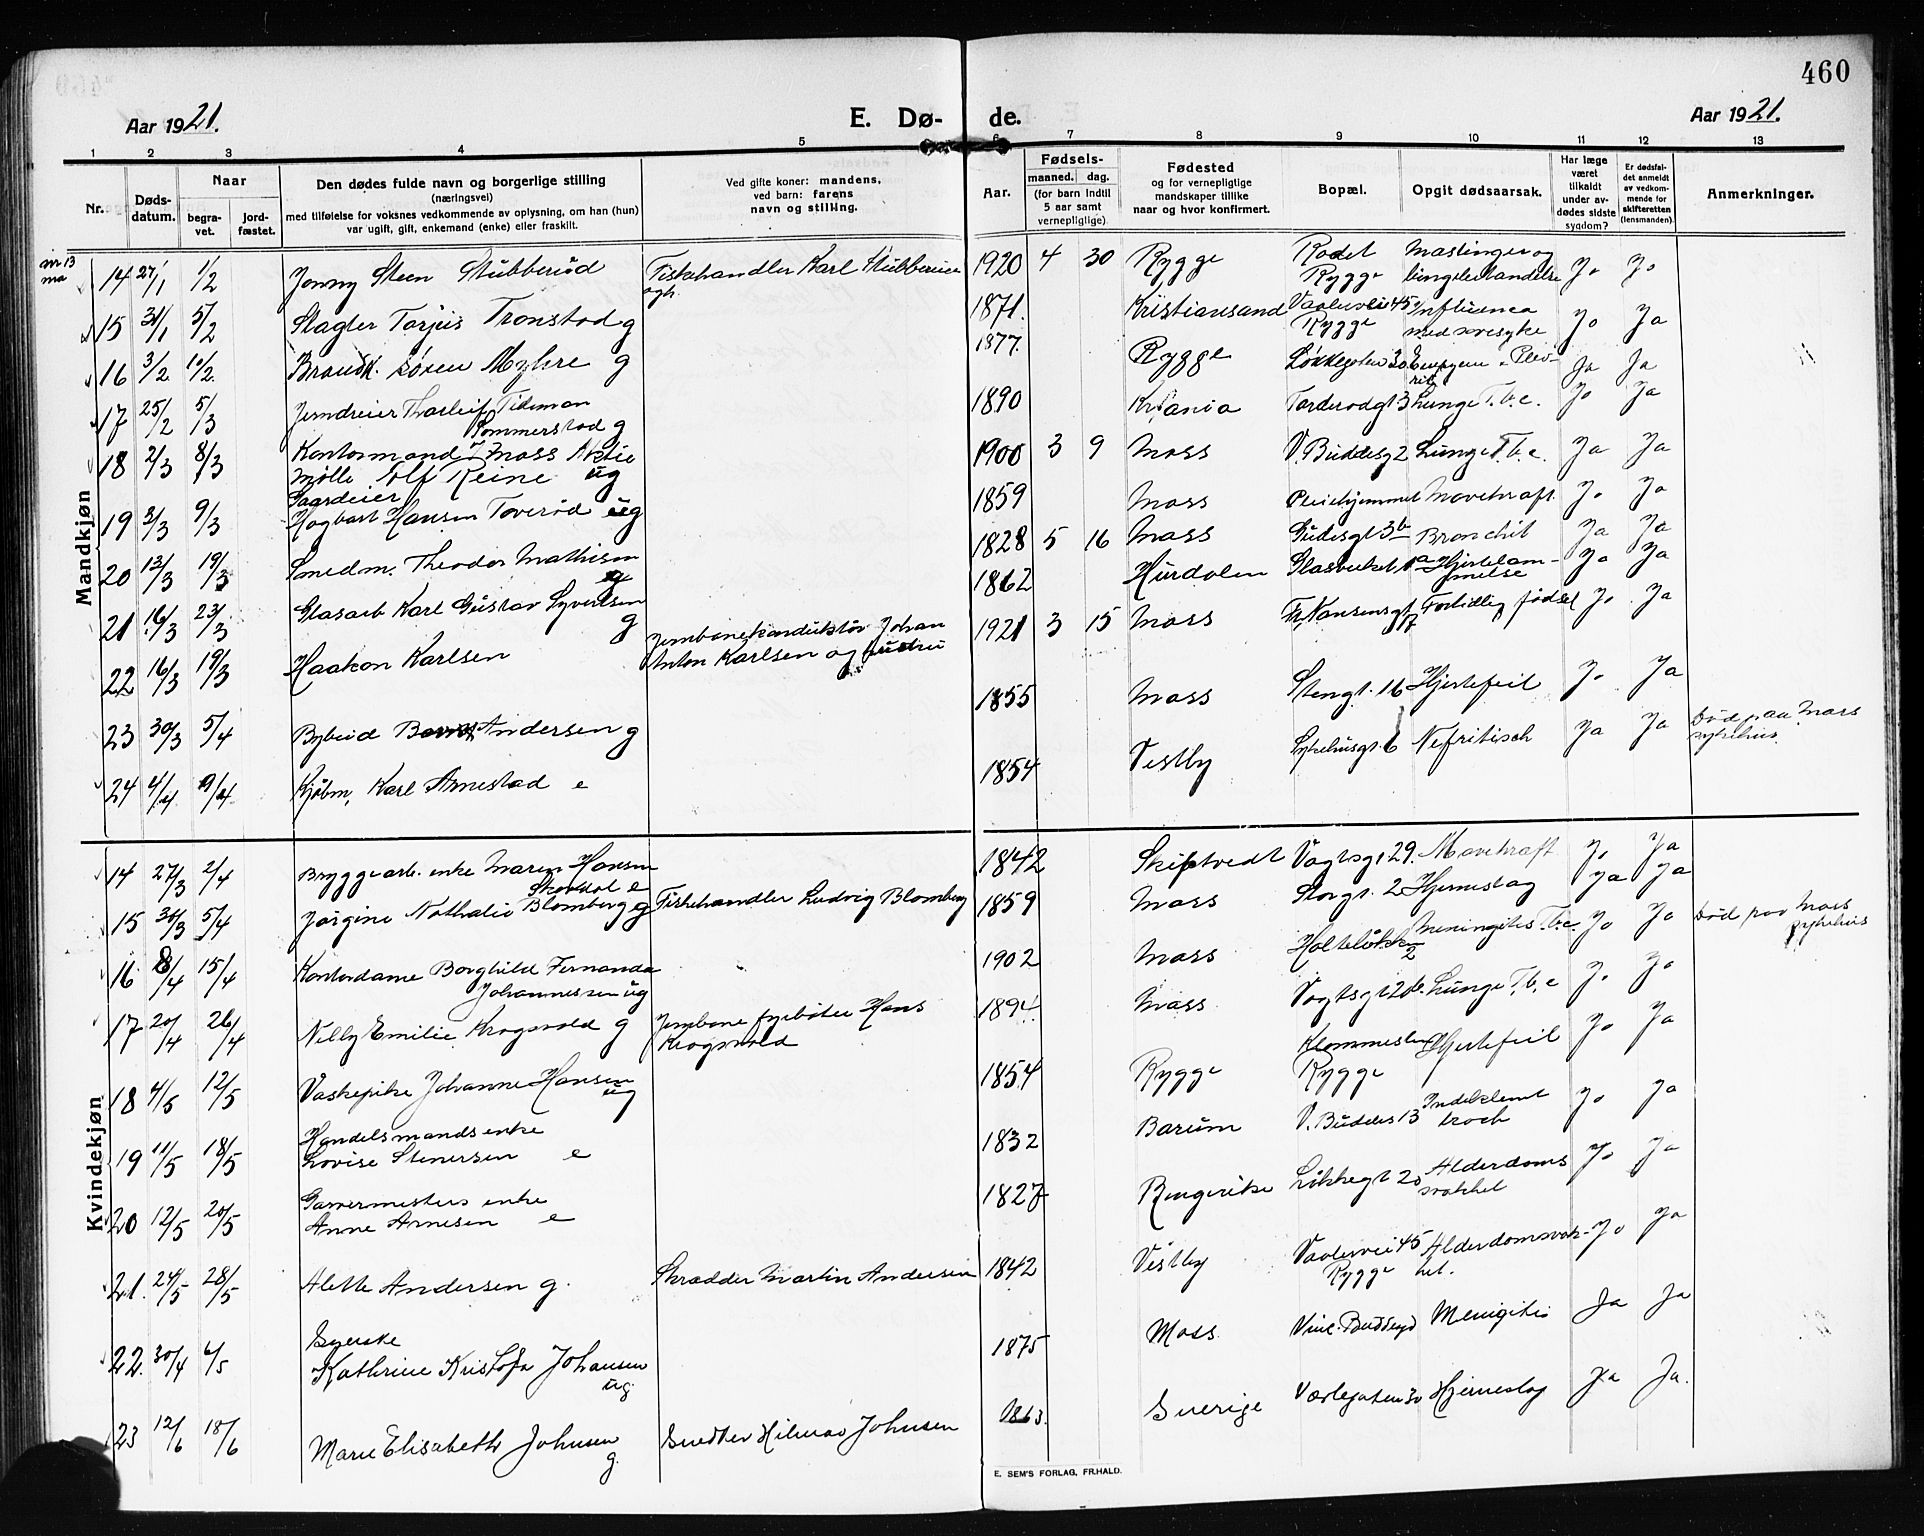 460
Aar 1921.
E. Dø-
de.
Aar 1921.
1 2 3 4 5 6 7 8 9 10 11 12 13
Nr.
Døds-
datum.
Naar
begra-
vet.
jord-
fæstet.
Den dødes fulde navn og borgerlige stilling
(næringsvei)
med tilføielse for voksnes vedkommende av oplysning, om han (hun)
var ugift, gift, enkemand (enke) eller fraskilt.
Ved gifte koner: mandens,
ved barn: farens
navn og stilling.
Aar.
Fødsels-
maaned. dag.
(for barn indtil
5 aar samt
vernepligtige)
Fødested
og for vernepligtige
mandskaper tillike
naar og hvor konfirmert.
Bopæl.
Opgit dødsaarsak.
Har læge
været
tilkaldt
under av-
dødes sidste
sygdom?
Er dødsfal-
det anmeldt
av vedkom-
mende for
skifteretten
(lensmanden).
Anmerkninger.
Mandkjøn
14 27/1 1/2 Jonny Steen Stubberød Fiskehandler Karl Stubberud 1920 4 30 Rygge Rodet Rygge Mæslinger og Ja Ja
15 31/1 5/2 Slagter Torjus Tronstad g 1871. Kristiansand Vaalerveie 45 Rygge Influensa Ja Ja
16 3/2 10/2 Søren Myhre g 1877. Rygge Ja Ja
17 25/2 5/3 Jerndreier Thorleif Tideman
Sommerstad g 1890 Kr.ania 3 Lunge T.b.c. Ja Ja
18 2/3 8/3 Kontormand v Moss Aktie
mølle Rolf Reine ug 1900 3 9 Moss V. Buddesg 2 Lunge T.b.c. Ja Ja
19 3/3 9/3 Gaardeier
Hagbart Hansen Toverød ug 1859 Moss Pleiehjemmet Mavekraft Ja Ja
20 13/3 19/3 Smedm. Theodor Mathisen
g 1828 5 16 Moss Gudesgt 3b Bronchit Ja Ja
21 16/3 23/3 Glasarb Karl Gustav Syvertsen
g 1862 Hurdalen Glasverket 1a Hjertelam-
melse Ja Ja
22 16/3 19/3 Haakon Karlsen Jernbanekonduktør Johan
Anton Karlsen og hustru 1921 3 15 Moss Fr. Nansensgt 17 Fortidlig fødsel Ja Ja
23 30/3 5/4 Bybud Andersen g 1855 Moss Stengt. 16 Hjertefeil Ja Ja
24 4/4 9/4 Kjøbm. Karl Arnestad e 1854 Vestby Sykehusgt. 6 Nefritisch Ja Ja Død paa Moss
sykehus.
Kvindekjøn
14 27/3 2/4 Bryggearb. enke Maren Hansen
Skovdal e 1842 Skiptvedt Vogtsgt 29. Mavekraft Ja Ja
15 30/3 5/4 Jørgine Nathalie Blomberg g Fiskehandler Ludvig Blomberg 1859 Moss Storgt. 2 Hjerneslag Ja Ja
16 8/4 15/4 Kontordame Borghild Fernanda
Johannessen ug 1902 Moss Holteløkken 2 Meningites T.b.c. Ja Ja Død paa Moss
sykehus
17 20/4 26/4 Nelly Emilie Krogsvold g Jernbane fyrbøter Hans
Krogsvold 1894 Moss Vogtsgt 20b. Lunge T.b.c Ja Ja
18 4/5 12/5 Vaskepike Johanne Hansen
ug 1854 Rygge Klommesten
Rygge Hjertefeil Ja Ja
19 11/5 18/5 Handelsmands enke
Lovise Stenersen e 1832 Barum V. Buddes 13 Indeklemt
brock Ja Ja
20 12/5 20/5 Garvermesters enke
Anne Arnesen e 1827 Ringerike Løkkegt 20 Alderdoms
svakhet Ja Ja
21. 24/5 28/5 Alette Andersen g. Skrædder Martin Andersen 1842 Vestby Vaalerveie 45
Rygge Alderdomsvak-
het. Ja Ja
22. 30/4 6/5 Syerske
Kathrine Kristofa Johansen
ug. 1875 Moss Vinc. Buddesgd Menigitis Ja Ja
23 12/6 18/6 Marie Elisabeth Johnsen
g. Snedker Hilmar Johnsen 1863. Sverige Værlegaten 30 Hjerneslag Ja Ja.
E. SEM'S FORLAG, FR.HALD.